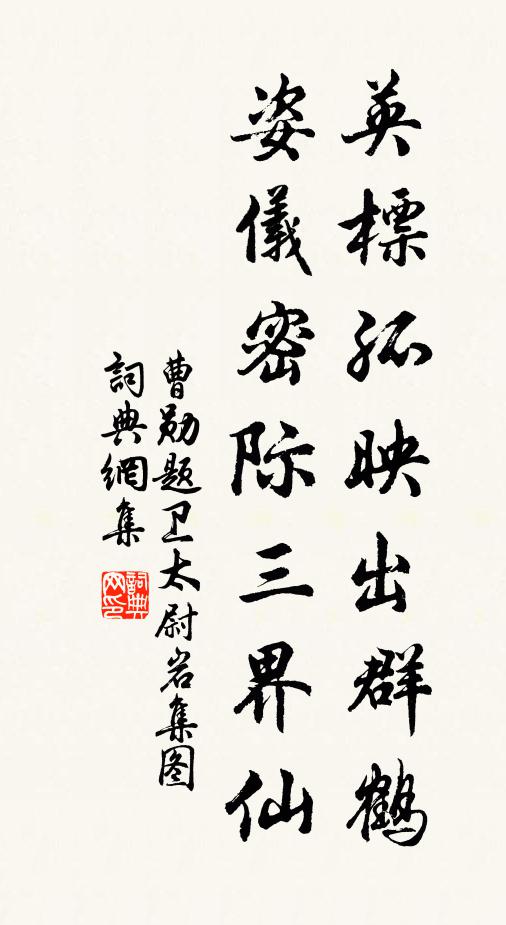 英標孤映出群鶴
姿儀密际三界仙
曹勋题卫太尉岩集图
詞典網集
詞典网印